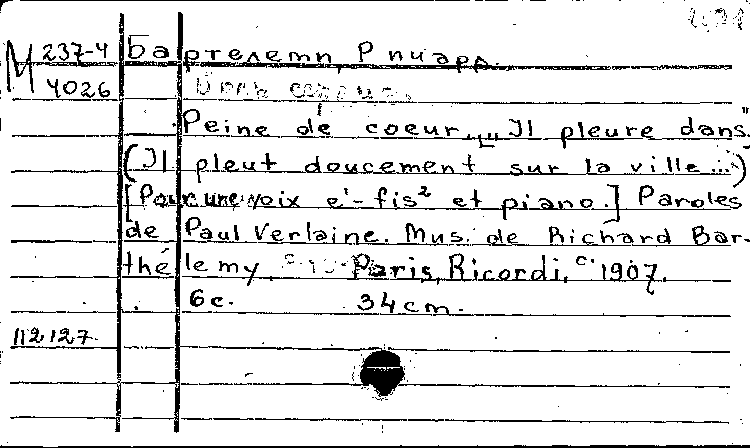 М 237-4 Бартелеми, Ришард.
4026 Боль сердца.
Peine de coeur... Il pleure dans"
(Il pleut doucement sur la ville...)
[Pour une voix e'-fis² et piano.] Paroles
de Paul Verlaine. Mus. de Richard Bar-
thélemy. Paris, Ricordi, c. 1907.
6 c. 34 cm.
112127